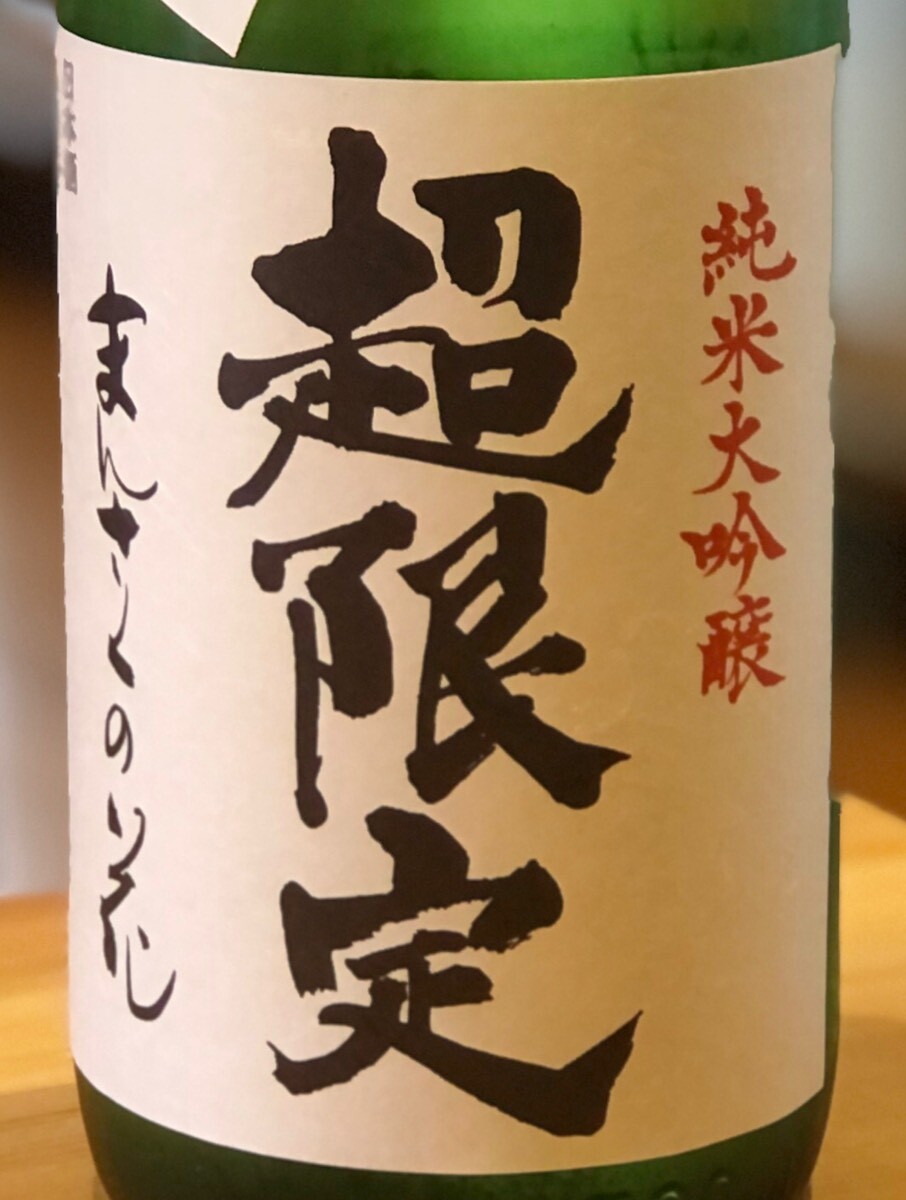 純米大吟醸
超限定
まんさくの花
日本酒